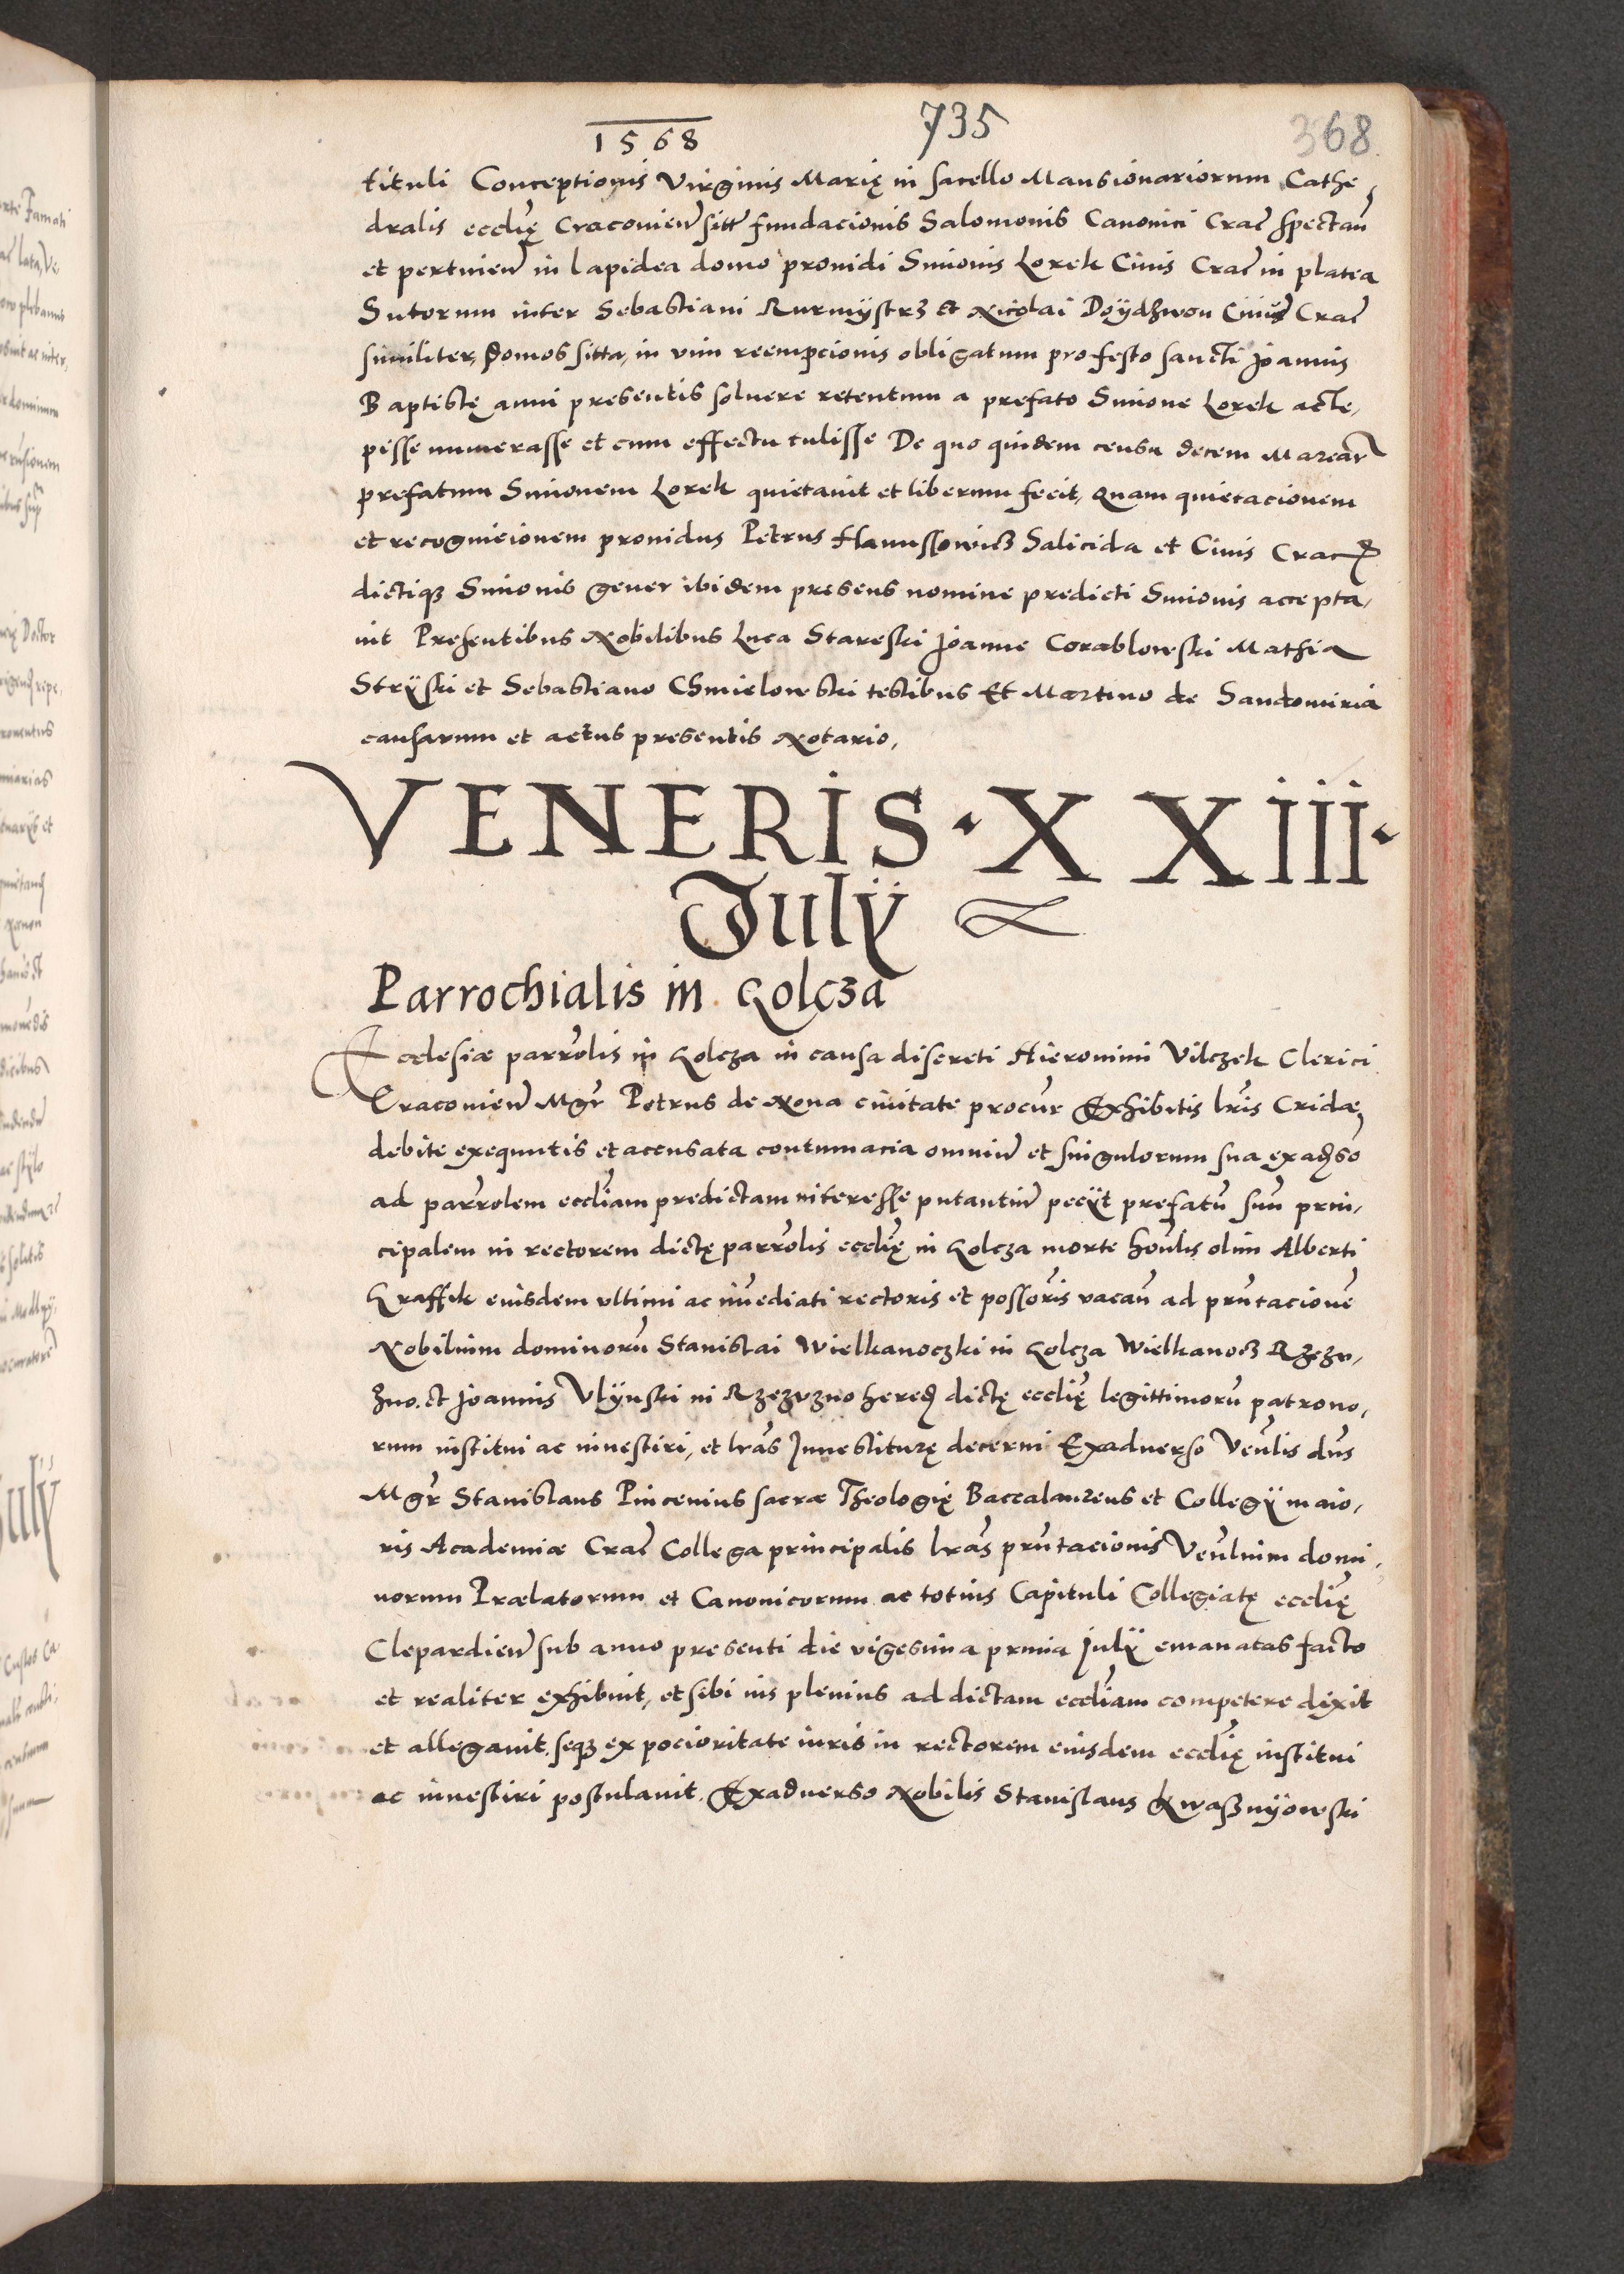 1568 735 368
tituli Conceptionis Virginis Marię in sacello Mansionariorum Cathe
dralis eccl̃ię Cracovien̄ sitt̃ fundacionis Salomonis Canonici Crac̃ spectan̄
et pertinien̄ in lapidea domo providi Simonis Lorek Civis Crac̃ in platea
Sutorum inter Sebastiani Rurmÿstrz et Nicolai Doÿdzwon Civiū Crac̃
similiter, domos sitta, in vim reempcionis obligatum pro festo sancti Joannis
Baptistę anni presentis solvere retentum a prefato Simone Lorek acce,
pisse numerasse et cum effectu tulisse De quo quidem censu decem Marcar̃
prefatum Simonem Lorek quietavit et liberum fecit, Quam quietacionem
et recognicionem providus Petrus Hanussowicz Salicida et Civis Crac̃
dictiqz Simonis gener ibidem presens nomine predicti Simonis accepta,
vit Presentibus Nobilibus Luca Stareski Joanne Corablowski Mathia
Strÿski et Sebastiano Chmielowski testibus Et Martino de Sandomiria
causarum et actus presentis Notario,
VENERIS · XXIII ·
Julÿ
Parrochialis in Golcza
Ecclesiæ parr̃olis in Golcza in causa discreti Hieronimi Vilczek Clerici
Cracovien̄ Mgr̃ Petrus de Nova civitate procur̃ Exhibitis lr̃is Cridæ,
debite exequutis et accusata contumacia omniū et singulorum sua ex adṽso
ad parr̃olem eccl̃iam predictam interesse putantiū peciit prefatū suū prin,
cipalem in rectorem dictę parr̃olis eccl̃ię in Golcza morte hon̄lis olim Alberti
Graffik eiusdem ultimi ac im̄ediati rectoris et possor̃is vacan̄ ad prn̄tacionē
Nobilium dominorū Stanislai Wielkanoczki in Golcza Wielkanocz Rzezu,
zno. et Joannis Vlÿnski in Rzezuzno hered̄ dictę eccl̃ię legittimorū patrono,
rum institui ac investiri, et lr̃as Investiturę decerni Exadverso Ven̄lis dn̄s
Mgr̃ Stanislaus Pincenius sacræ Theologię Baccalaureus et Collegÿ maio,
ris Academiæ Crac̃ Collega principalis lr̃as prn̄tacionis Ven̄lium domi,
norum Prælatorum et Canonicorum ac totius Capituli Collegiatę eccl̃ię
Clepardien̄ sub anno presenti die vigesima prima Julÿ emanatas facto
et realiter exhibuit, et sibi ius plenius ad dictam eccl̃iam competere dixit
et allegavit, seqz ex pocioritate iuris in rectorem eiusdem eccl̃ię institui
ac investiri postulavit. Exadverso Nobilis Stanislaus Kwasznÿowski